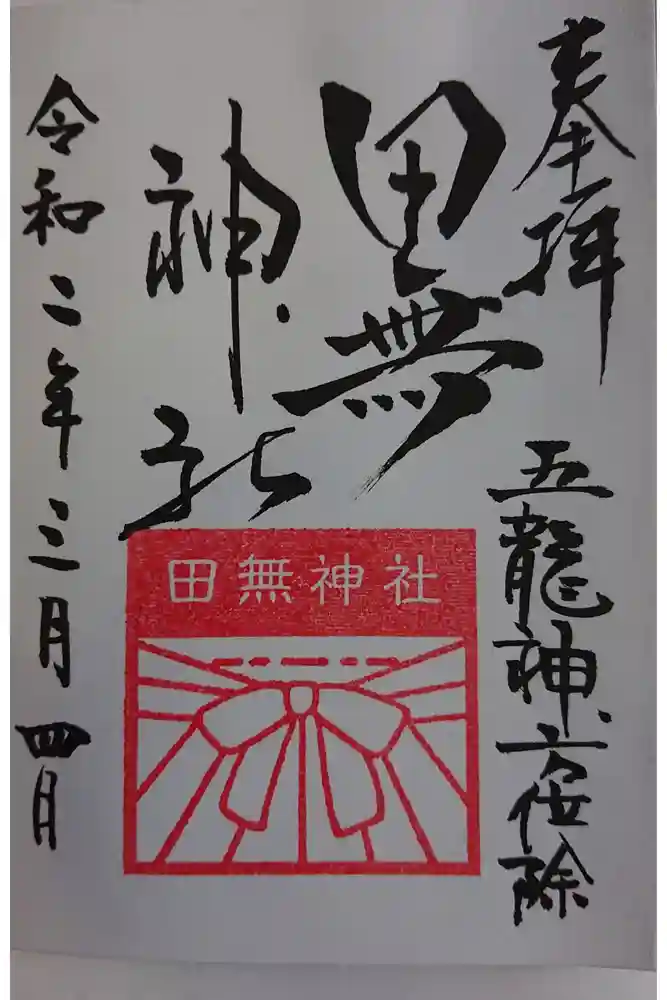 奉拝
五龍神方位除
田無
神社
田無神社
令和二年三月四日